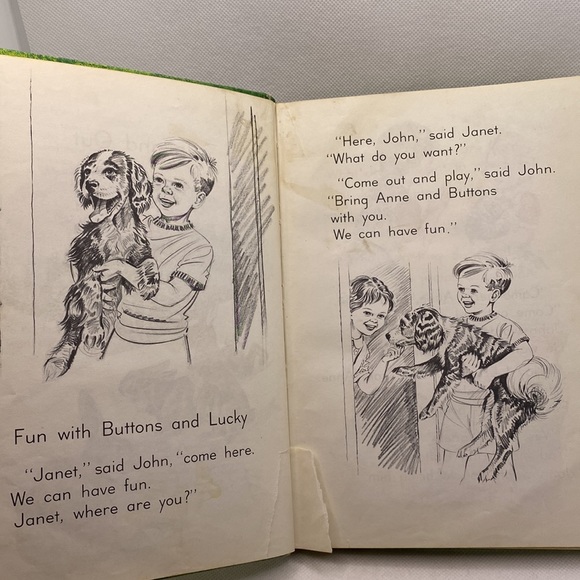 Fun with Buttons and Lucky
"Janet," said John, "come here.
We can have fun.
Janet, where are you?"
"Here, John," said Janet.
"What do you want?"
"Come out and play," said John.
"Bring Anne and Buttons
with you.
We can have fun."